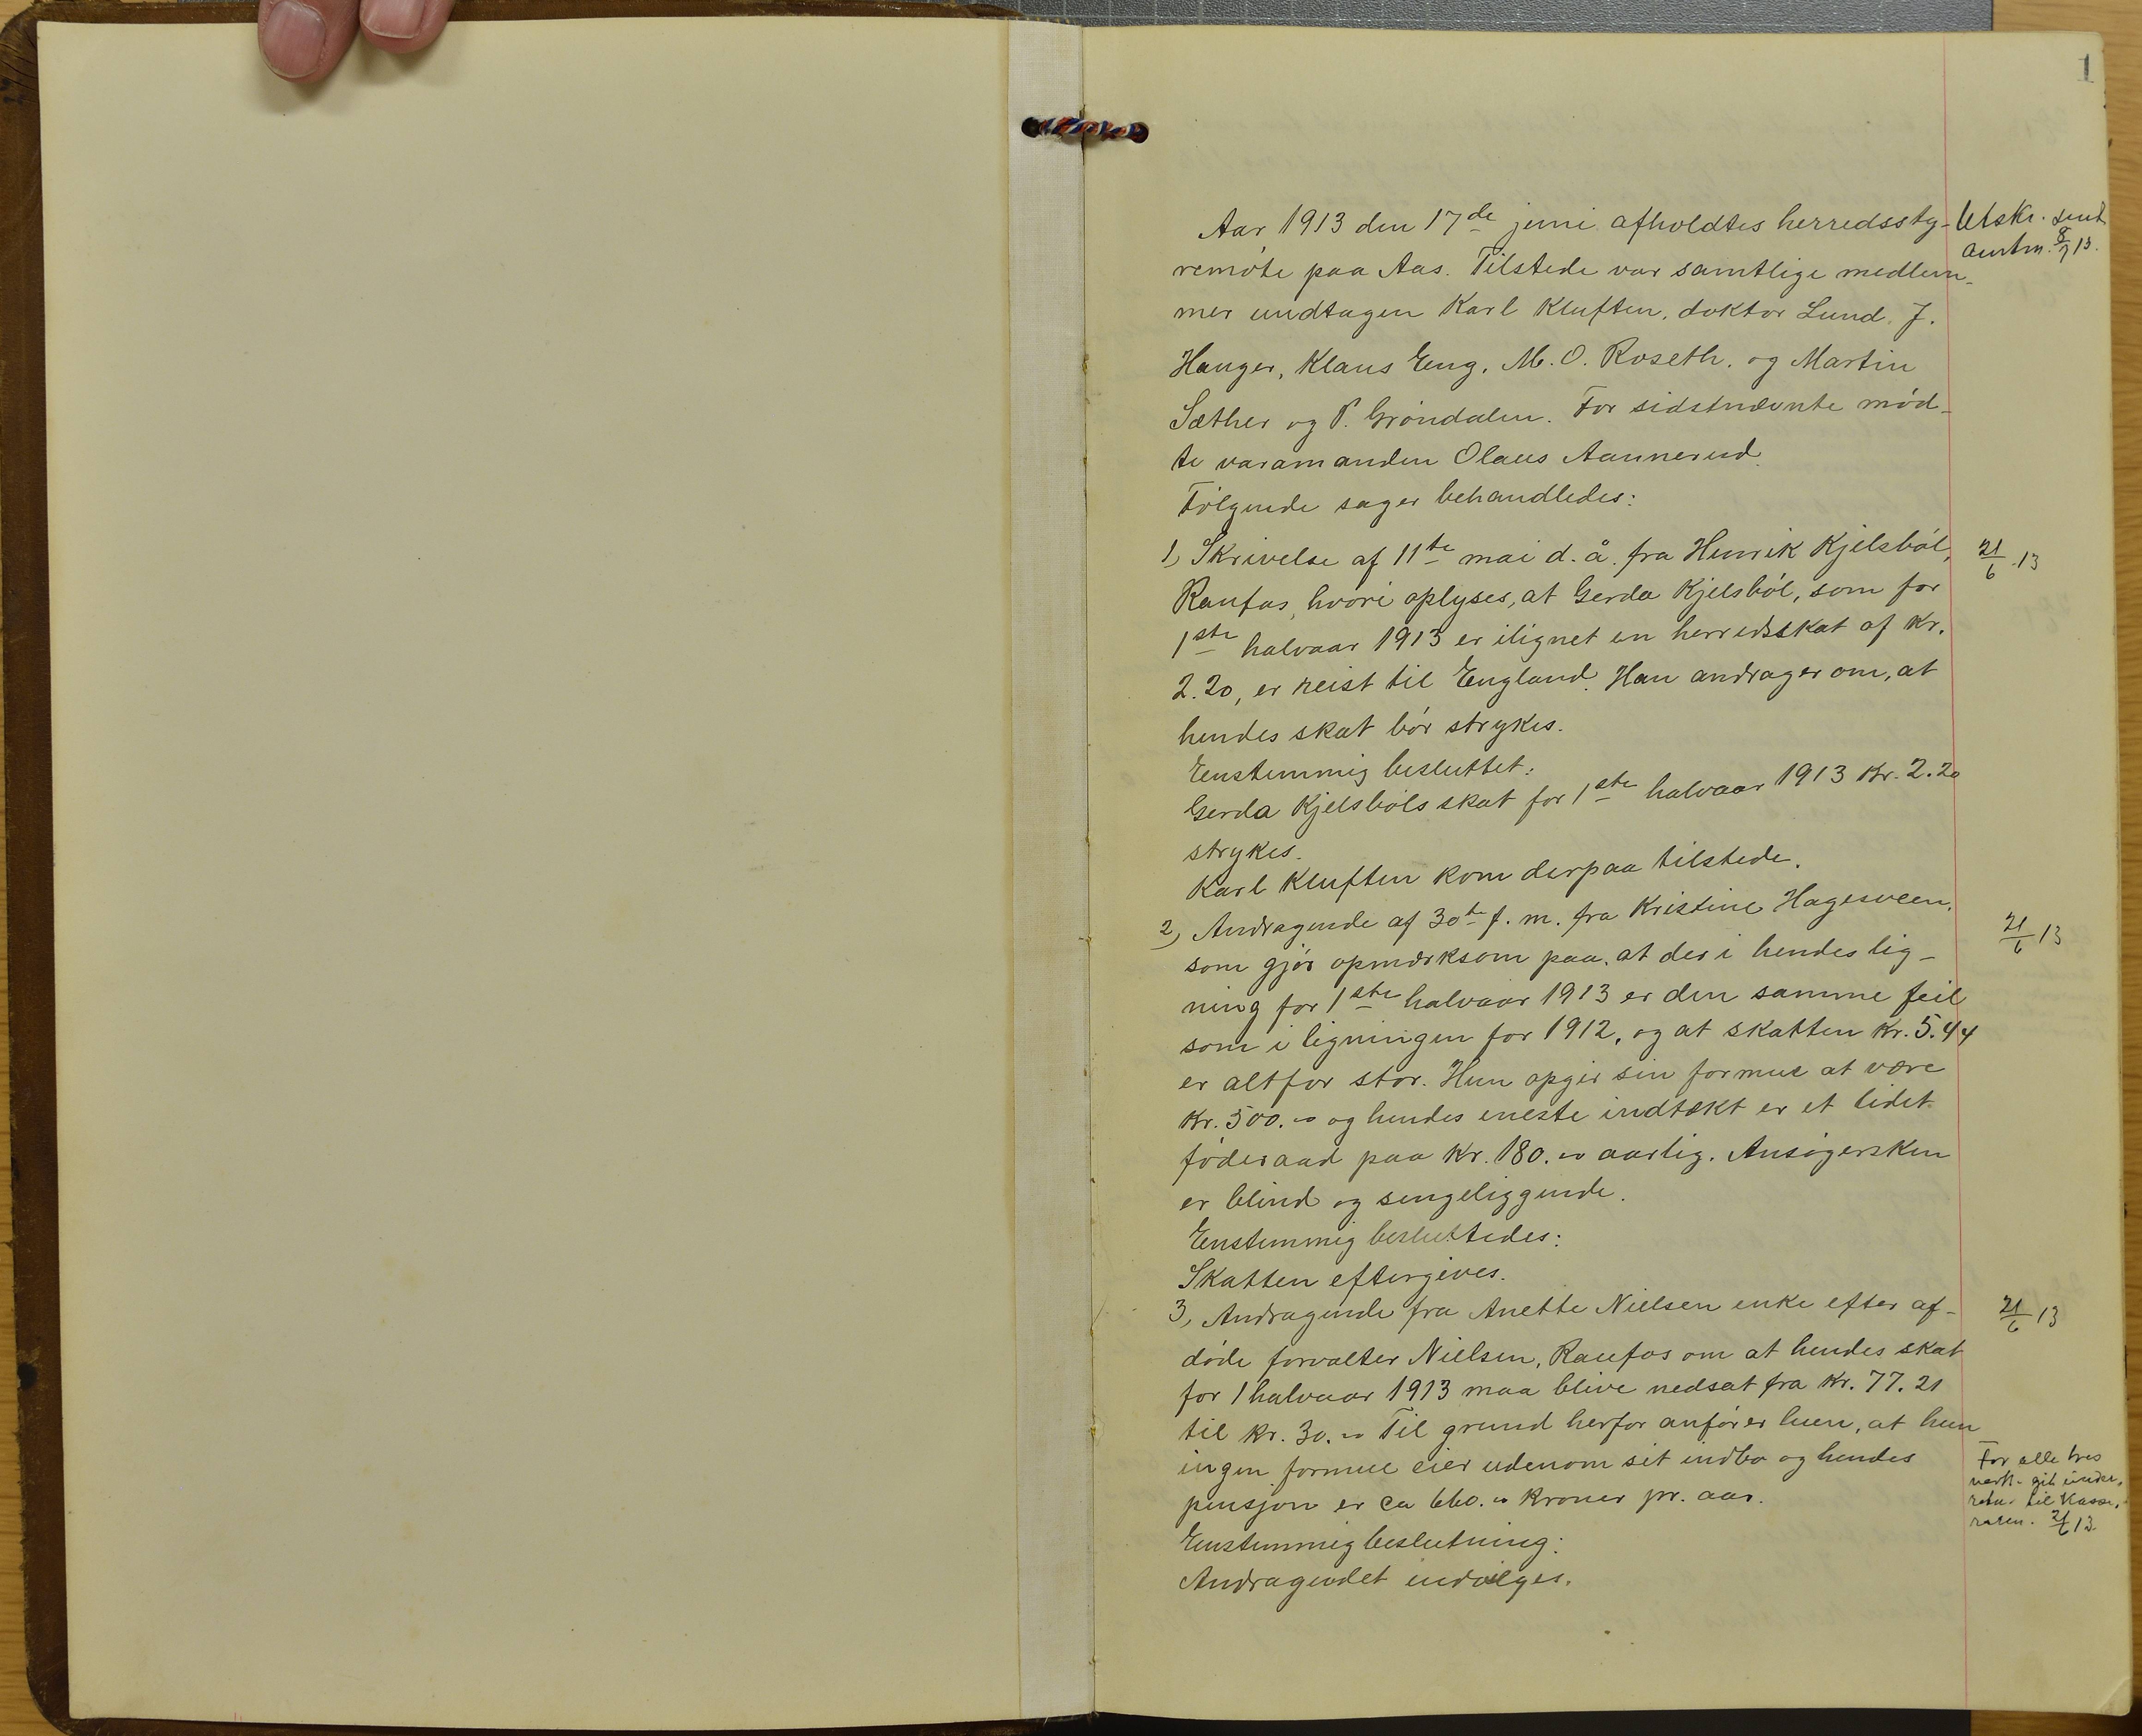 1
Aar 1913 den 17de juni afholdtes herredssty-
remöte paa Aas. Tilstede var samtlige medlem-
mer undtagen Karl Kluften, doktor Lund, J.
Hauger, Klaus Eng, M. O. Roseth, og Martin
Sæther og P. Gröndalen. For sidstnævnte mød-
te varamanden Olaus Aannerud.
Fölgende sager behandledes:
1) Skrivelse af 11te mai d. å. fra Henrik Kjelsböl,
Raufos, hvori oplyses, at Gerda Kjelsböl, som for
1ste halvaar 1913 er ilignet en herredsskat af kr.
2.20, er reist til England. Han andrager om, at
hendes skat bör strykes.
Enstemmig besluttet:
Gerda Kjelsböls skat for 1ste halvaar 1913 Kr. 2.20
strykes.
Karl Kluften kom derpaa tilstede.
2) Andragende af 30te f. m. fra Kristine Hagesveen,
som gjör opmerksom paa, at der i hendes lig-
ning for 1ste halvaar 1913 er den samme feil
som i ligningen for 1912, og at skatten Kr. 5.44
er altfor stor. Hun opgir sin formue at være
Kr. 500.00 og hendes eneste indtækt er et lidet
föderaad paa Kr. 180.00 aarlig. Ansögersken
er blind og sengeliggende.
Enstemmig besluttedes:
Skatten eftergives.
3) Andragende fra Anette Nielsen enke efter af-
döde forvalter Nielsen, Raufos om at hendes skat
for 1 halvaar 1913 maa blive nedsat fra Kr. 77.21
til kr. 30.00 Til grund herfor anförer hun, at hun
ingen formue eier udenom sit indbo og hendes
pensjon er ca 660.00 Kroner pr. aar.
Enstemmig beslutning:
Andragendet indvilges.
Utskr. sendt
amtm. 8/7 13.
21/6 13
21/6 13
21/6 13
For alle tres
vedk. git under,
retn. til Kasse,
reren. 21/6 13.